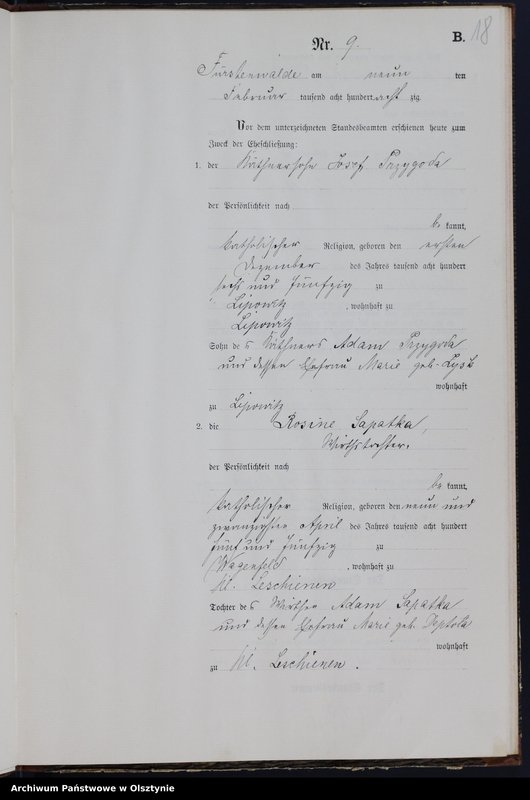 B. 18
Nr. 9.
Fürstenwalde am neun ten
Februar tausend acht hundert acht zig
Vor dem unterzeichneten Standesbeamten erschienen heute zum
Zweck der Eheschließung:
1. der Käthnersohn Josef Przygoda
der Persönlichkeit nach
be kannt,
katholischer Religion, geboren den ersten
Dezember des Jahres tausend acht hundert
sechs und fünfzig zu
Lipowitz , wohnhaft zu
Lipowitz
Sohn des Käthners Adam Przygoda
und dessen Ehefrau Marie geb. Lysk
wohnhaft
zu Lipowitz
2. die Rosine Sapatka,
Wirthstochter,
der Persönlichkeit nach
be kannt,
katholischer Religion, geboren den neun und
zwanzigsten April des Jahres tausend acht hundert
fünf und fünfzig zu
Wagenfeld , wohnhaft zu
Kl. Leschienen
Tochter des Wirthen Adam Sapatka
und dessen Ehefrau Marie geb. Deptola
wohnhaft
zu Kl. Leschienen.
Archiwum Państwowe w Olsztynie